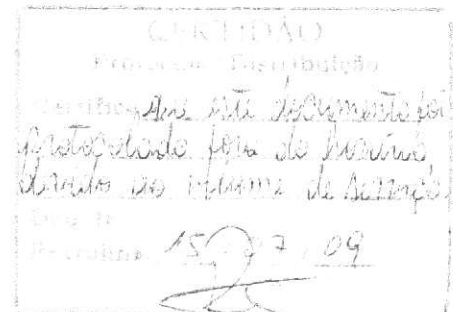 CERTIDÃO
Protocolo / Distribuição
Certifico que este documento foi
protocolado fora do horário
devido ao volume de serviço.
Dou fé
Petrolina, 15 / 07 / 09